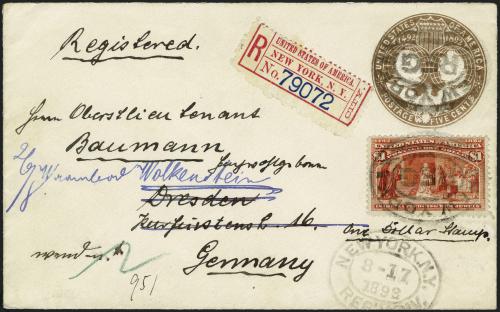 Registered.
R
UNITED STATES OF AMERICA.
NEW YORK, N. Y.
No. 79072
UNITED STATES OF AMERICA
1492 1892
POSTAGE FIVE CENTS
Herrn Oberstlieutenant
Baumann
Hochwohlgeboren
Wolkenstein
Dresden
Kurfürstenstr. 16.
Germany
One Dollar Stamp.
UNITED STATES OF AMERICA
$1
$1
NEW YORK, N.Y.
8-17
1893
951